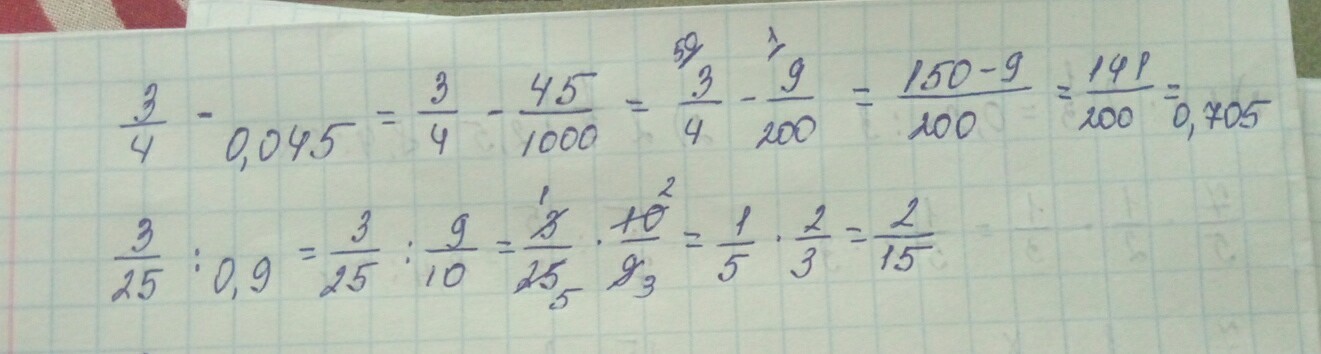 3/4 - 0,045 = 3/4 - 45/1000 = 50/ 3/4 - 1/ 9/200 = 150-9/200 = 141/200 = 0,705
3/25 : 0,9 = 3/25 : 9/10 = 3 1/25 5 · 10 2/9 3 = 1/5 · 2/3 = 2/15